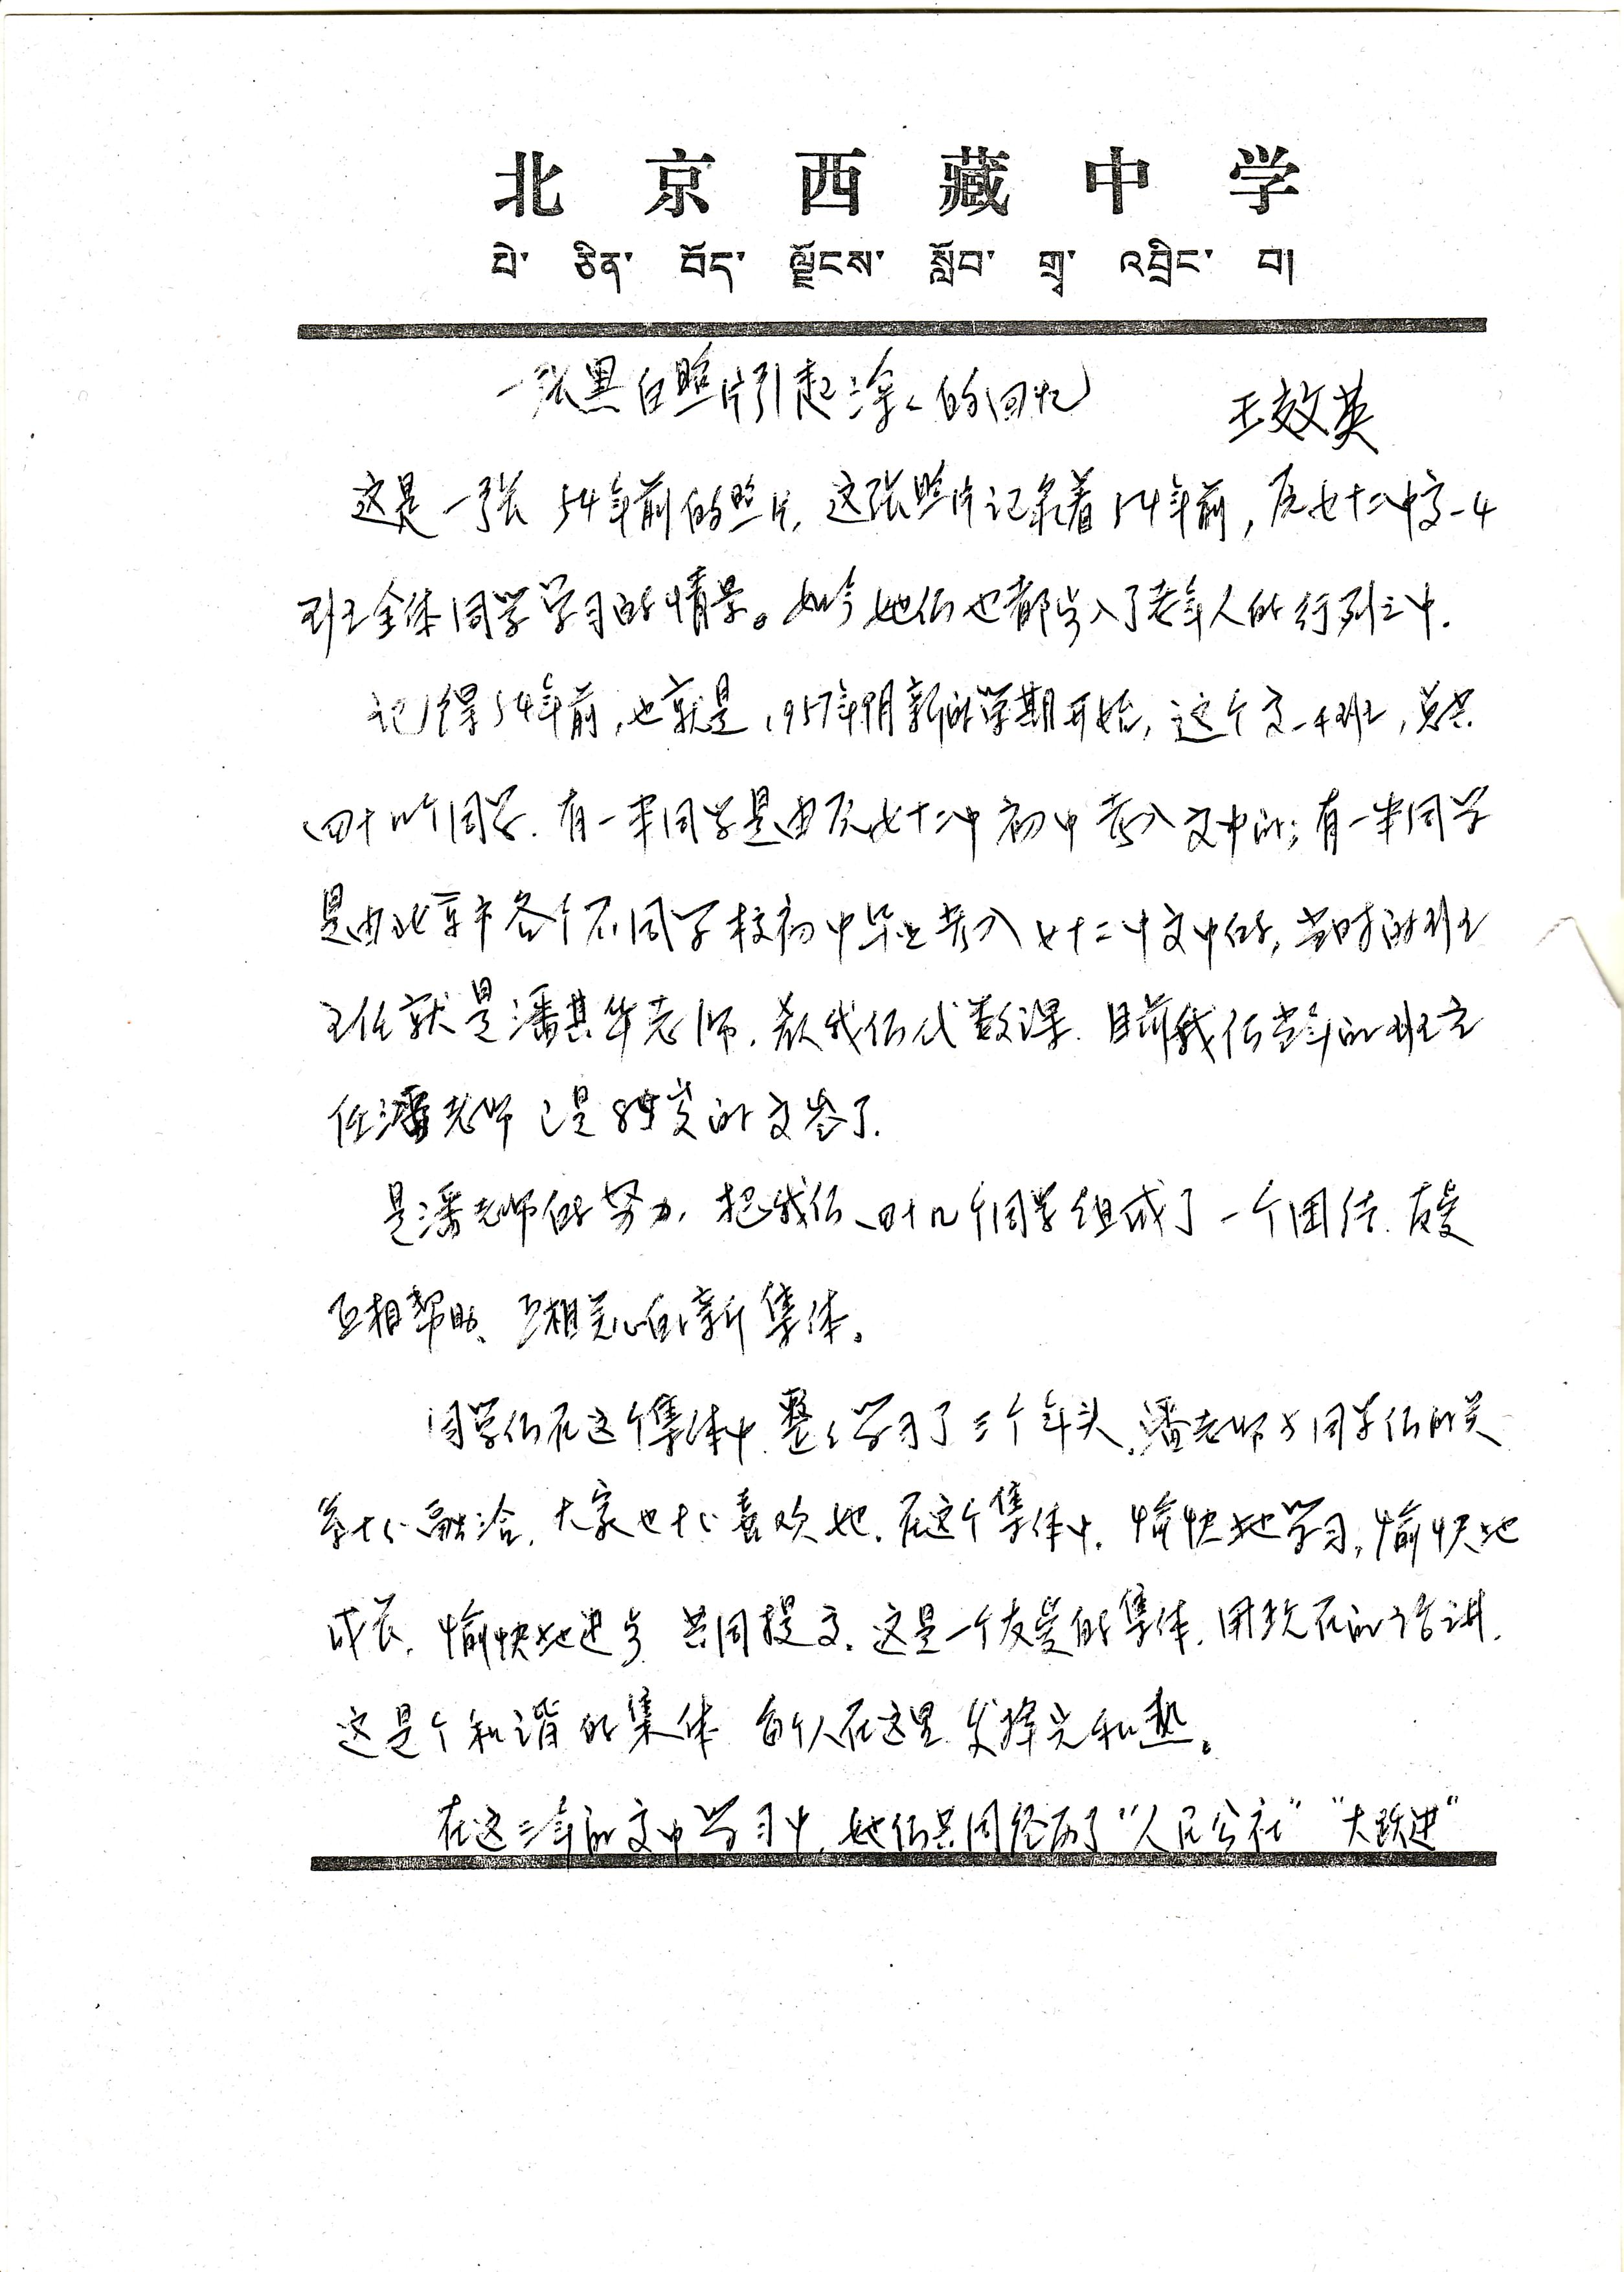 北京西藏中学
པེ་ ཅིན་ བོད་ ལྗོངས་ སློབ་ གྲྭ་ འབྲིང་ བ།
一张黑白照片引起深々的回忆
王效英
这是一张54年前的照片,这张照片记录着54年前,原七十二中高一4
班全体同学学习的情景。如今她们也都步入了老年人的行列之中.
记得54年前,也就是1957年9月新的学期开始,这个高一4班,总共
四十几个同学.有一半同学是由原七十二中初中考入高中的;有一半同学
是由北京市各个不同学校初中毕业考入七十二中高中的,当时的班
主任就是潘其华老师.教我们代数课.目前我们当年的班主
任潘老师已是85岁的高龄了.
是潘老师的努力,把我们四十几个同学组成了一个团结.友爱
互相帮助、互相关心的新集体。
同学们在这个集体中整々学习了三个年头.潘老师与同学们的关
系十分融洽.大家也十分喜欢她.在这个集体中.愉快地学习,愉快地
成长.愉快地进步 共同提高.这是一个友爱的集体.用现在的话讲.
这是个和谐的集体 每个人在这里发挥光和热。
在这三年的高中学习中,她们共同经历了"人民公社" "大跃进"